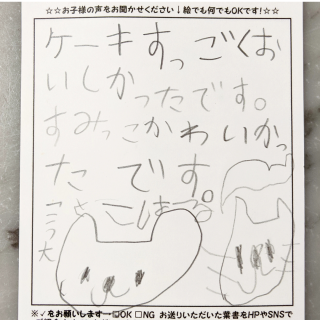 ☆☆お子様の声をお聞かせください↓絵でも何でもOKです!☆☆
ケーキすっごくお
いしかったです。
すみっこかわいかっ
た です。
※✓をお願いします→□OK □NG お送りいただいた葉書をHPやSNSで